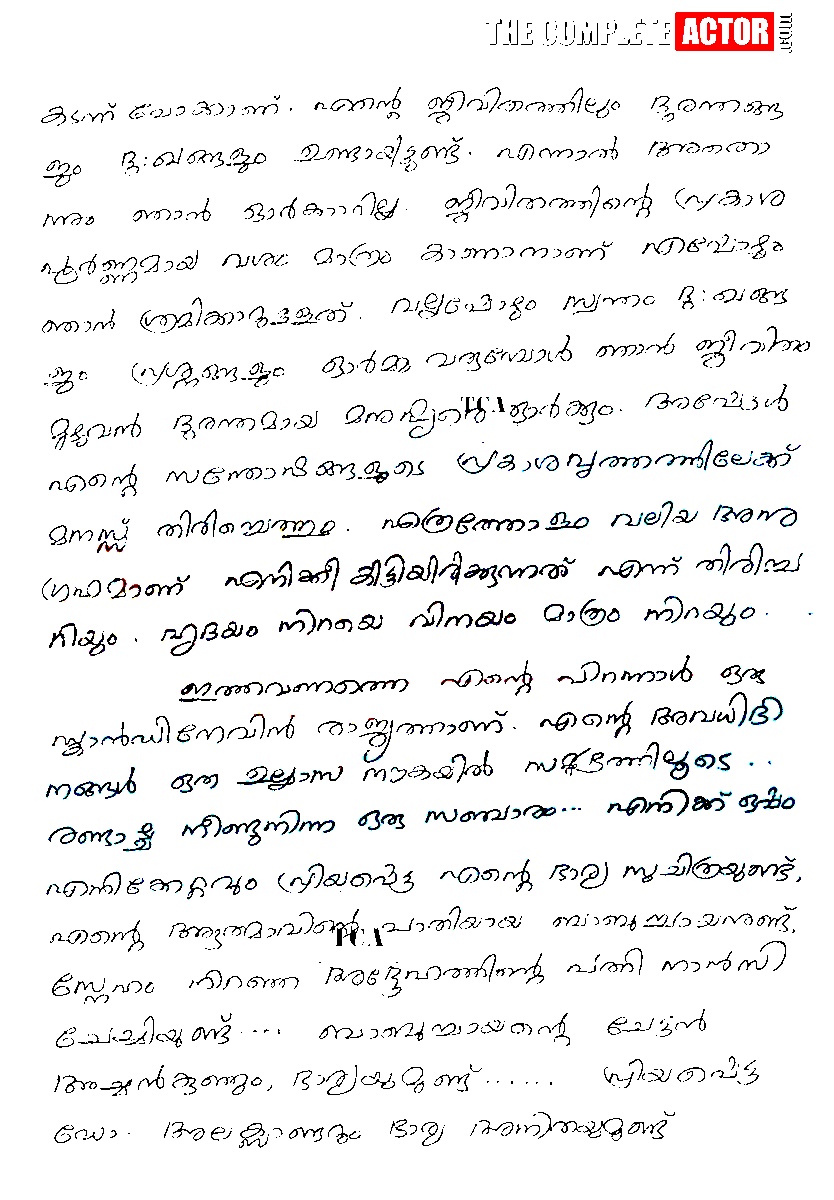 THE COMPLETE ACTOR
കടന്ന് പോക്കാണ്. എന്റെ ജീവിതത്തിലും ദുരന്തങ്ങ
ളും ദു:ഖങ്ങളും ഉണ്ടായിട്ടുണ്ട്. എന്നാൽ അതൊ
ന്നും ഞാൻ ഓർക്കാറില്ല. ജീവിതത്തിന്റെ പ്രകാശ
പൂർണ്ണമായ വശം മാത്രം കാണാനാണ് എപ്പോഴും
ഞാൻ ശ്രമിക്കാറുള്ളത്. വല്ലപ്പോഴും സ്വന്തം ദു:ഖങ്ങ
ളും പ്രശ്നങ്ങളും ഓർമ്മ വരുമ്പോൾ ഞാൻ ജീവിതം
മുഴുവൻ ദുരന്തമായ മനുഷ്യരെ ഓർക്കും. അപ്പോൾ
എന്റെ സന്തോഷങ്ങളുടെ പ്രകാശവൃത്തത്തിലേക്ക്
മനസ്സ് തിരിച്ചെത്തും. എത്രത്തോളം വലിയ അനു
ഗ്രഹമാണ് എനിക്ക് കിട്ടിയിരിക്കുന്നത് എന്ന് തിരിച്ച
റിയും. ഹൃദയം നിറയെ വിനയം മാത്രം നിറയും.
ഇത്തവണത്തെ എന്റെ പിറന്നാൾ ഒരു
സ്കാൻഡിനേവിൻ രാജ്യത്താണ്. എന്റെ അവധിദി
നങ്ങൾ ഒരു ഉല്ലാസ നൗകയിൽ സമുദ്രത്തിലൂടെ..
രണ്ടാഴ്ച്ച നീണ്ടുനിന്ന ഒരു സഞ്ചാരം... എനിക്ക് ഒപ്പം
എനിക്കേറ്റവും പ്രിയപ്പെട്ട എന്റെ ഭാര്യ സുചിത്രയുണ്ട്,
എന്റെ ആത്മാവിന്റെ പാതിയായ ബാബുച്ചായനുണ്ട്,
സ്നേഹം നിറഞ്ഞ അദ്ദേഹത്തിന്റെ പത്നി നാൻസി
ചേച്ചിയുണ്ട്.... ബാബുച്ചായന്റെ ചേട്ടൻ
അച്ചൻകുഞ്ഞും, ഭാര്യയുമുണ്ട്...... പ്രിയപ്പെട്ട
ഡോ. അലക്സാണ്ടറും ഭാര്യ അനിതയുമുണ്ട്
TCA
TCA